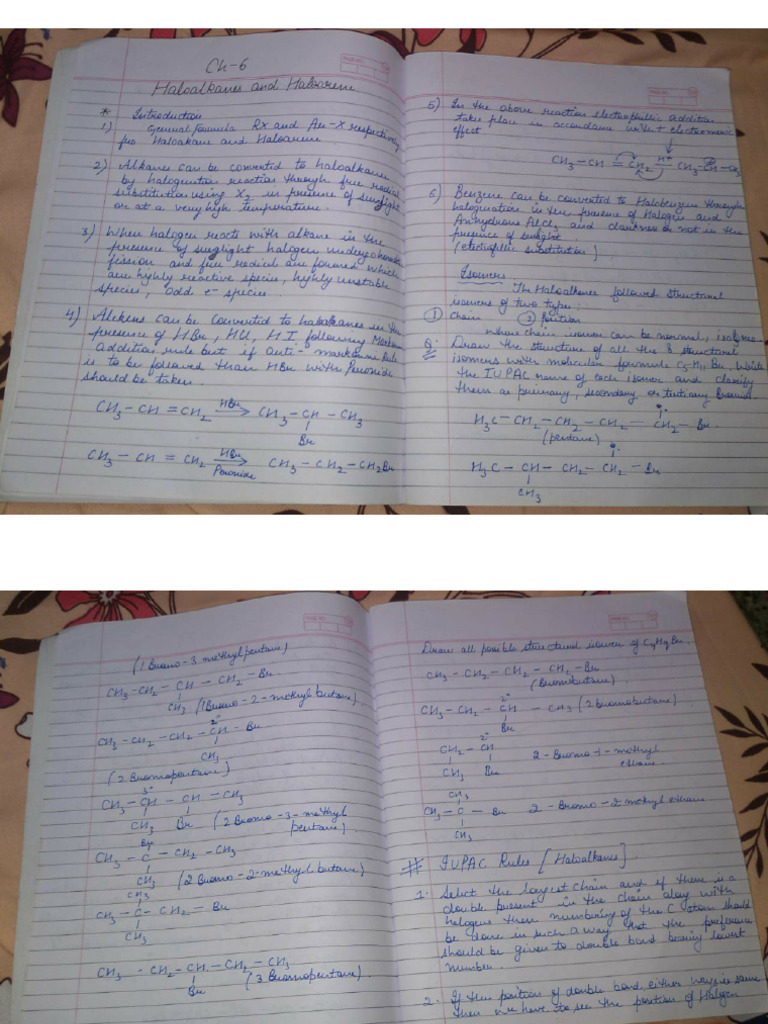 Ch-6
Haloalkanes and Haloarene
* Introduction
1) General formula RX and Ar-X respectively
for Haloalkane and Haloarene.
2) Alkanes can be converted to haloalkane
by halogenation reaction through free radical
substitution using X2 in presence of sunlight
or at a very high temperature.
3) When halogen reacts with alkane in the
presence of sunglight halogen undergo homo
fission and free radical are formed which
are highly reactive species, highly unstable
species, odd e- species.
4) Alkens can be converted to haloalkanes in the
presence of HBr, HCl, HI following Markow
addition rule but if Anti- markow Rule
is to be followed than HBr with Peroxide
should be taken.
CH3-CH=CH2 HBr→ CH3-CH-CH3
Br
CH3-CH=CH2 HBr→ CH3-CH2-CH2Br
Peroxide
5) In the above reaction electrophilic addition
take place in accordance with + electromeric
effect.
CH3-CH=CH2 H+→ CH3-CH-CH3
6) Benzene can be converted to Halobenzene through
halogenation in the presence of Halogen and
Anhydrous AlCl3 and darkness or not in the
presence of sunlight.
(electrophilic substitution)
Isomers
The Haloalkanes followed structural
isomers of two types:
① Chain ② Position
whose chain isomer can be normal,
Q. Draw the structure of all the 8 structural
isomers with molecular formula C5H11Br. Write
the IUPAC name of each isomer and classify
them as primary, secondary or tertiary Bromide.
1°
H3C-CH2-CH2-CH2-CH2-Br
(pentane)
1°
H3C-CH-CH2-CH2-Br
CH3
(1 Bromo-3 methyl pentane)
CH3-CH2-CH-CH2-Br
CH3 (1 Bromo-2-methyl butane)
2°
CH3-CH2-CH2-CH-Br
CH3
(2 Bromopentane)
CH3-CH-CH-CH3
CH3 Br (2 Bromo-3-methyl
pentane)
Br
CH3-C-CH2-CH3
CH3 (2 Bromo-2-methyl butane)
CH3
CH3-C-CH2-Br
CH3
CH3-CH2-CH-CH2-CH3
Br (3 Bromopentane)
Draw all possible structural isomer of C4H9Br.
CH3-CH2-CH2-CH2-Br
(Bromobutane)
2°
CH3-CH2-CH-CH3 (2 Bromobutane)
Br
2°
CH2-CH 2-Bromo-1-methyl
CH3 Br ethane
CH3
CH3-C-Br 2-Bromo-2 methyl ethane
CH3
# IUPAC Rules [Haloalkanes]
1. Select the largest chain and if there is a
double present in the chain along with
halogens then numbering of the C atom should
be done in such a way that the preference
should be given to double bond bearing lowest
number.
2. If the position of double bond, either way is same
then we have to see the position of Halogen